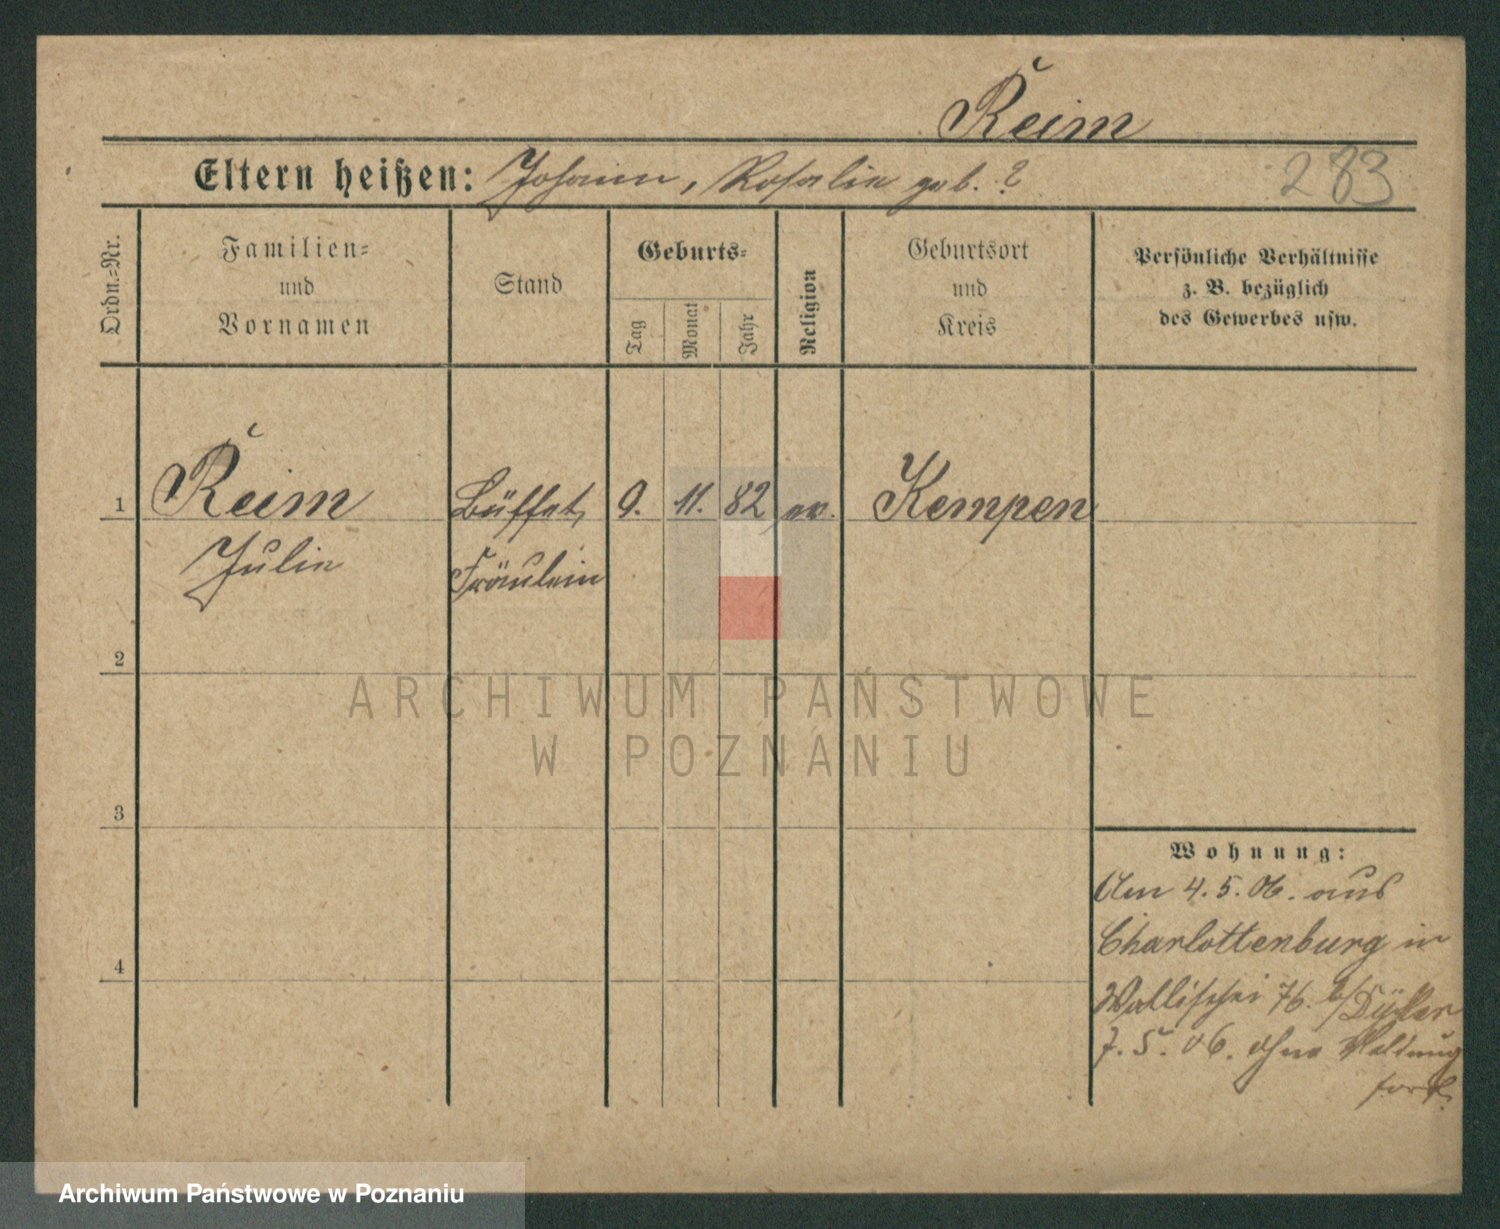 Reim
Eltern heißen: Johann, Rosalie geb. ?
283
Ordn.=Nr.
Familien=
und
Vornamen
Stand
Geburts=
Tag
Monat
Jahr
Religion
Geburtsort
und
Kreis
Persönliche Verhältnisse
z. B. bezüglich
des Gewerbes usw.
1 Reim Büffet, 9. 11. 82 ev. Kempen
Julie Fräulein
2
3
4
ARCHIWUM PAŃSTWOWE
W POZNANIU
Wohnung:
Am 4. 5. 06. aus
Charlottenburg in
Wallischei 76. b/
7. 5. 06. ohne Meldung
fort.
Archiwum Państwowe w Poznaniu